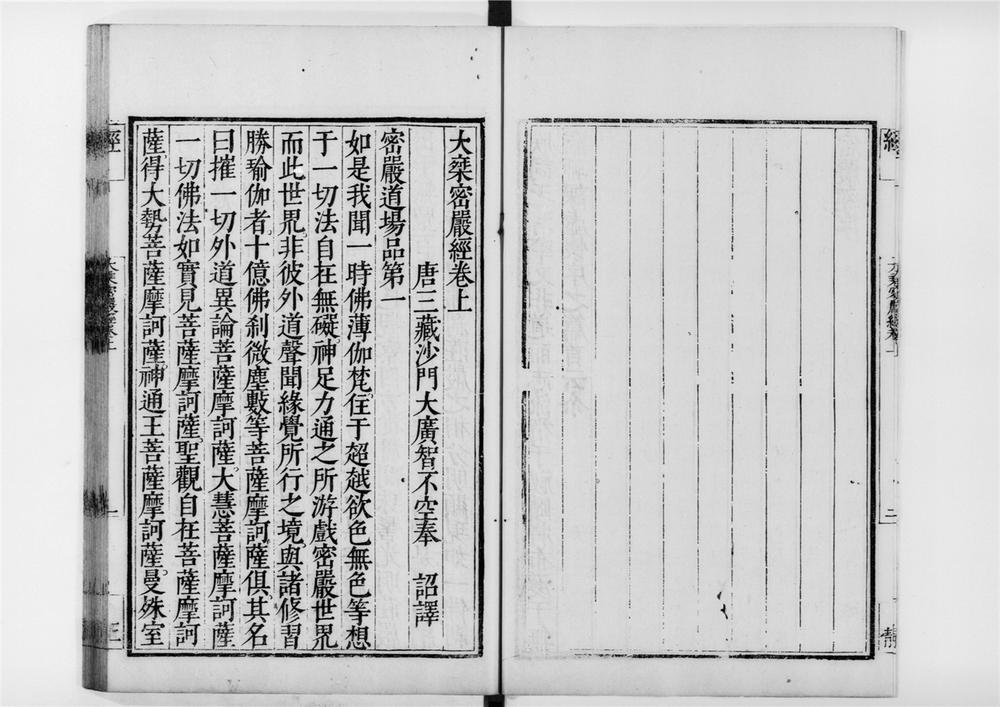 大椉密嚴經卷上
唐三藏沙門大廣智不空奉 詔譯
密嚴道場品第一
如是我聞一時佛薄伽梵住于超越欲色無色等想
于一切法自在無礙神足力通之所游戲密嚴世界
而此世界非彼外道聲聞緣覺所行之境與諸修習
勝瑜伽者十億佛刹微塵數等菩薩摩訶薩俱其名
曰摧一切外道異論菩薩摩訶薩大慧菩薩摩訶薩
一切佛法如實見菩薩摩訶薩聖觀自在菩薩摩訶
薩得大勢菩薩摩訶薩神通王菩薩摩訶薩曼殊室